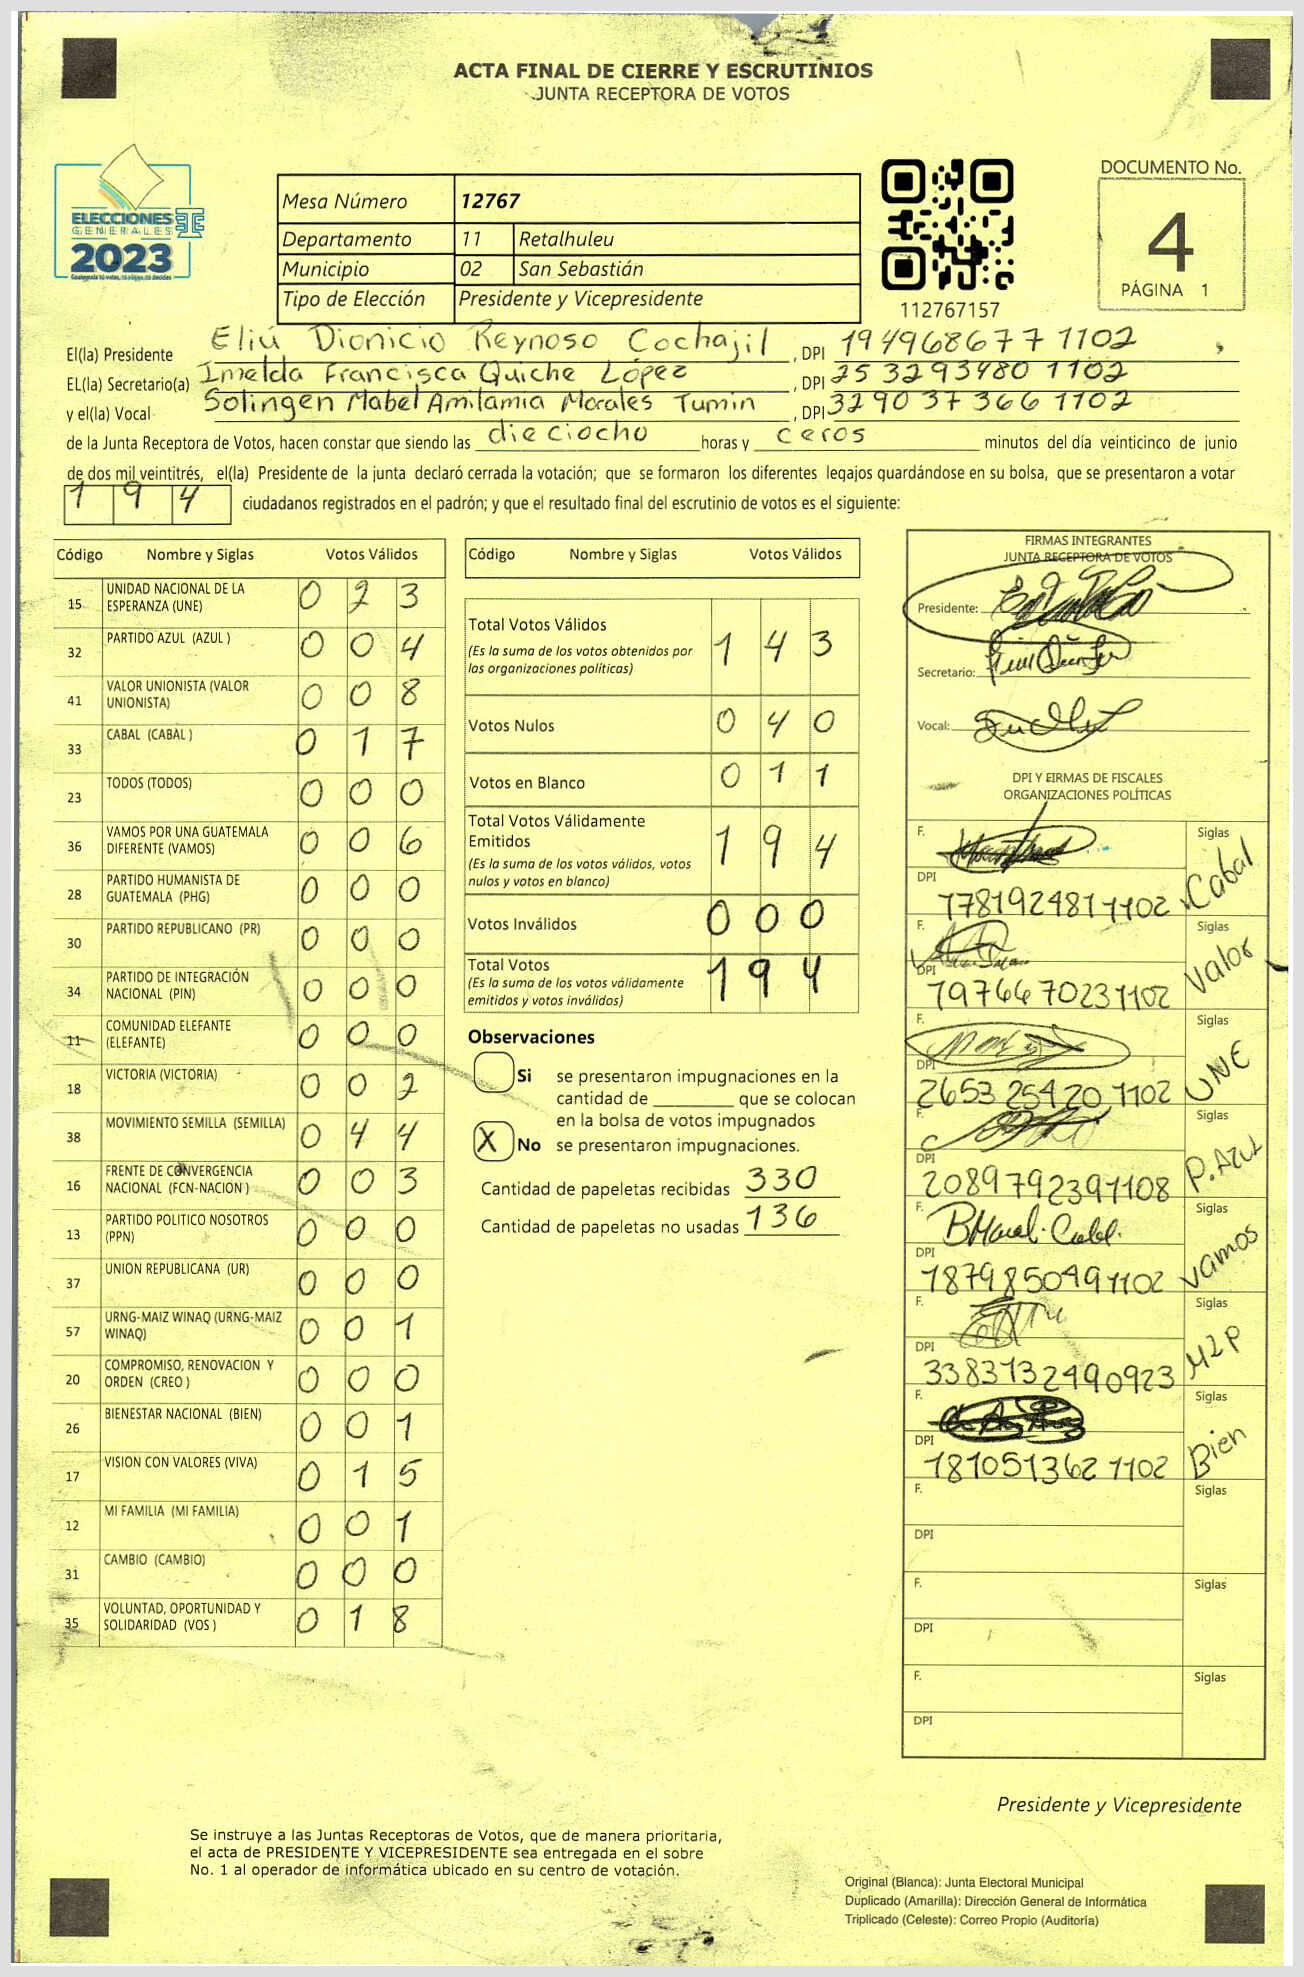 ACTA FINAL DE CIERRE Y ESCRUTINIOS
JUNTA RECEPTORA DE VOTOS
ELECCIONES
GENERALES
2023
Mesa Número 12767
Departamento 11 Retalhuleu
Municipio 02 San Sebastián
Tipo de Elección Presidente y Vicepresidente
112767157
DOCUMENTO No.
4
PÁGINA 1
El(la) Presidente Eliú Dionicio Reynoso Cochajil , DPI 194968677 1102
EL(la) Secretario(a) Imelda Francisca Quiche López , DPI 253293480 1102
y el(la) Vocal Solingen Mabel Amilamia Morales Tumin , DPI 329037366 1102
de la Junta Receptora de Votos, hacen constar que siendo las dieciocho horas y ceros minutos del día veinticinco de junio
de dos mil veintitrés, el(la) Presidente de la junta declaró cerrada la votación; que se formaron los diferentes legajos guardándose en su bolsa, que se presentaron a votar
194 ciudadanos registrados en el padrón; y que el resultado final del escrutinio de votos es el siguiente:
Código Nombre y Siglas Votos Válidos
15 UNIDAD NACIONAL DE LA ESPERANZA (UNE) 0 2 3
32 PARTIDO AZUL (AZUL ) 0 0 4
41 VALOR UNIONISTA (VALOR UNIONISTA) 0 0 8
33 CABAL (CABAL ) 0 1 7
23 TODOS (TODOS) 0 0 0
36 VAMOS POR UNA GUATEMALA DIFERENTE (VAMOS) 0 0 6
28 PARTIDO HUMANISTA DE GUATEMALA (PHG) 0 0 0
30 PARTIDO REPUBLICANO (PR) 0 0 0
34 PARTIDO DE INTEGRACIÓN NACIONAL (PIN) 0 0 0
11 COMUNIDAD ELEFANTE (ELEFANTE) 0 0 0
18 VICTORIA (VICTORIA) 0 0 2
38 MOVIMIENTO SEMILLA (SEMILLA) 0 4 4
16 FRENTE DE CONVERGENCIA NACIONAL (FCN-NACION ) 0 0 3
13 PARTIDO POLITICO NOSOTROS (PPN) 0 0 0
37 UNION REPUBLICANA (UR) 0 0 0
57 URNG-MAIZ WINAQ (URNG-MAIZ WINAQ) 0 0 1
20 COMPROMISO, RENOVACION Y ORDEN (CREO ) 0 0 0
26 BIENESTAR NACIONAL (BIEN) 0 0 1
17 VISION CON VALORES (VIVA) 0 1 5
12 MI FAMILIA (MI FAMILIA) 0 0 1
31 CAMBIO (CAMBIO) 0 0 0
35 VOLUNTAD, OPORTUNIDAD Y SOLIDARIDAD (VOS ) 0 1 8
Código Nombre y Siglas Votos Válidos
Total Votos Válidos 1 4 3
(Es la suma de los votos obtenidos por
las organizaciones políticas)
Votos Nulos 0 4 0
Votos en Blanco 0 1 1
Total Votos Válidamente
Emitidos 1 9 4
(Es la suma de los votos válidos, votos
nulos y votos en blanco)
Votos Inválidos 0 0 0
Total Votos 1 9 4
(Es la suma de los votos válidamente
emitidos y votos inválidos)
Observaciones
Si se presentaron impugnaciones en la
cantidad de ________ que se colocan
en la bolsa de votos impugnados
X No se presentaron impugnaciones.
Cantidad de papeletas recibidas 330
Cantidad de papeletas no usadas 136
FIRMAS INTEGRANTES
JUNTA RECEPTORA DE VOTOS
Presidente:
Secretario:
Vocal:
DPI Y FIRMAS DE FISCALES
ORGANIZACIONES POLÍTICAS
F. Siglas
DPI 1781924811102 Cabal
F. Siglas
DPI 1976670231102 Valor
F. Siglas
DPI 2653 25420 1102 UNE
F. Siglas
DPI 2089792391108 P.AZUL
F. Siglas
DPI 1879850491102 Vamos
F. Siglas
DPI 3383132490923 MLP
F. Siglas
DPI 181051362 1102 Bien
F. Siglas
DPI
F. Siglas
DPI
F. Siglas
DPI
Presidente y Vicepresidente
Se instruye a las Juntas Receptoras de Votos, que de manera prioritaria,
el acta de PRESIDENTE Y VICEPRESIDENTE sea entregada en el sobre
No. 1 al operador de informática ubicado en su centro de votación.
Original (Blanca): Junta Electoral Municipal
Duplicado (Amarilla): Dirección General de Informática
Triplicado (Celeste): Correo Propio (Auditoría)